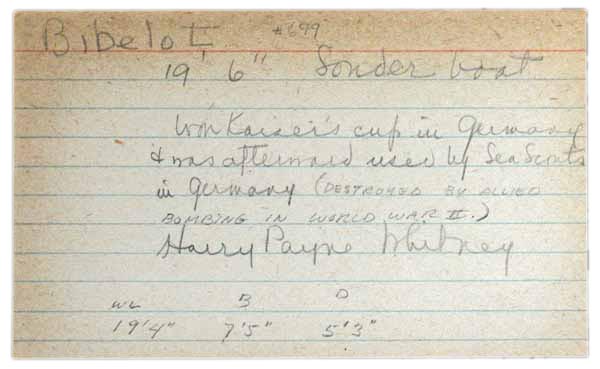 Bibelot #699
19' 6" Sonder boat
Won Kaiser's cup in Germany
& was afterward used by Sea Scouts
in Germany (DESTROYED BY ALLIED
BOMBING IN WORLD WAR II.)
Harry Payne Whitney
WL B D
19'4" 7'5" 5'3"